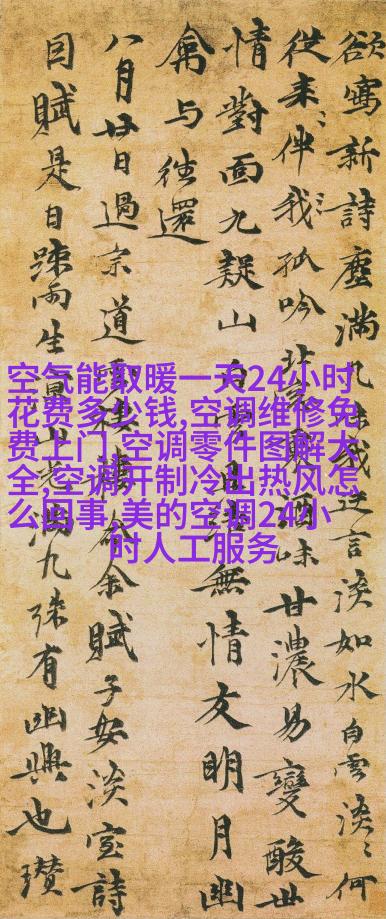 欲寫新詩塵滿几我言淡如水白雲淡〻何
從來〻伴我〻孤吟酒味甘濃易變酸世
情對面九疑山白雲且結無情友明月幽
禽与往還
八月廿日過宗道賦子安淡室詩
因賦是日疎雨生九疎有幽興也瓚
空气能取暖一天24小时
花费多少钱,空调维修免
费上门,空调零件图解大
全,空调开制冷出热风怎
么回事,美的空调24小
时人工服务